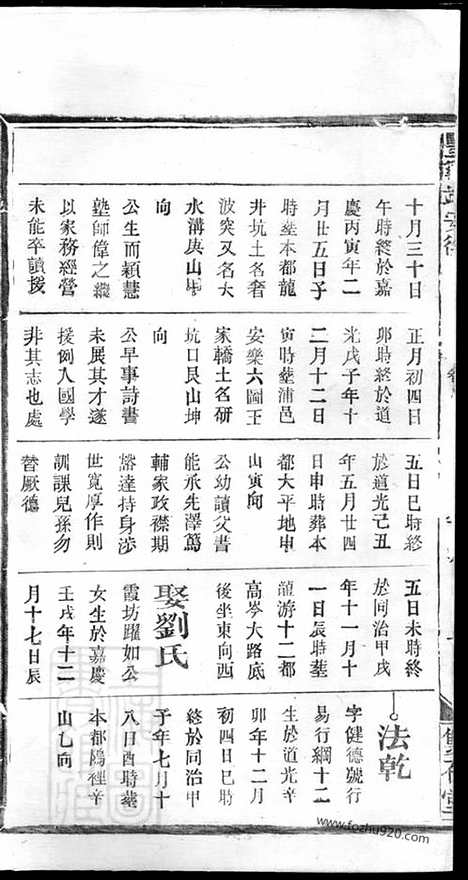 十月三十日
午時終於嘉
慶丙寅年二
月廿五日子
時塟本都龍
井坑土名奢
波突又名大
水溝庚山
向
公生而穎慧
塾師偉之繼
以家務經營
未能卒讀援
正月初四日
卯時終於道
光戊子年十
二月十二日
寅時塟浦邑
安樂六圖王
家轎土名硏
坑口艮山坤
向
公早事詩書
未展其才遂
援例入國學
非其志也處
五日巳時終
於道光己丑
年五月廿四
日申時葬本
都大平地申
山寅向
公幼讀父書
能承先澤篤
輔家政襟期
豁達持身涉
世寬厚作則
訓課兒孫勿
替厥德
五日未時終
於同治甲戌
年十一月十
一日辰時塟
龍游十二都
高岑大路底
後坐東向西
娶劉氏
霞坊躍如公
女生於嘉慶
壬戌年十二
月十七日辰
法乾
字健德號行
易行綱十二
生於道光辛
卯年十二月
初四日巳時
終於同治甲
子年七月十
八日酉時塟
本都隖裡辛
山乙向
www.fozhu920.com